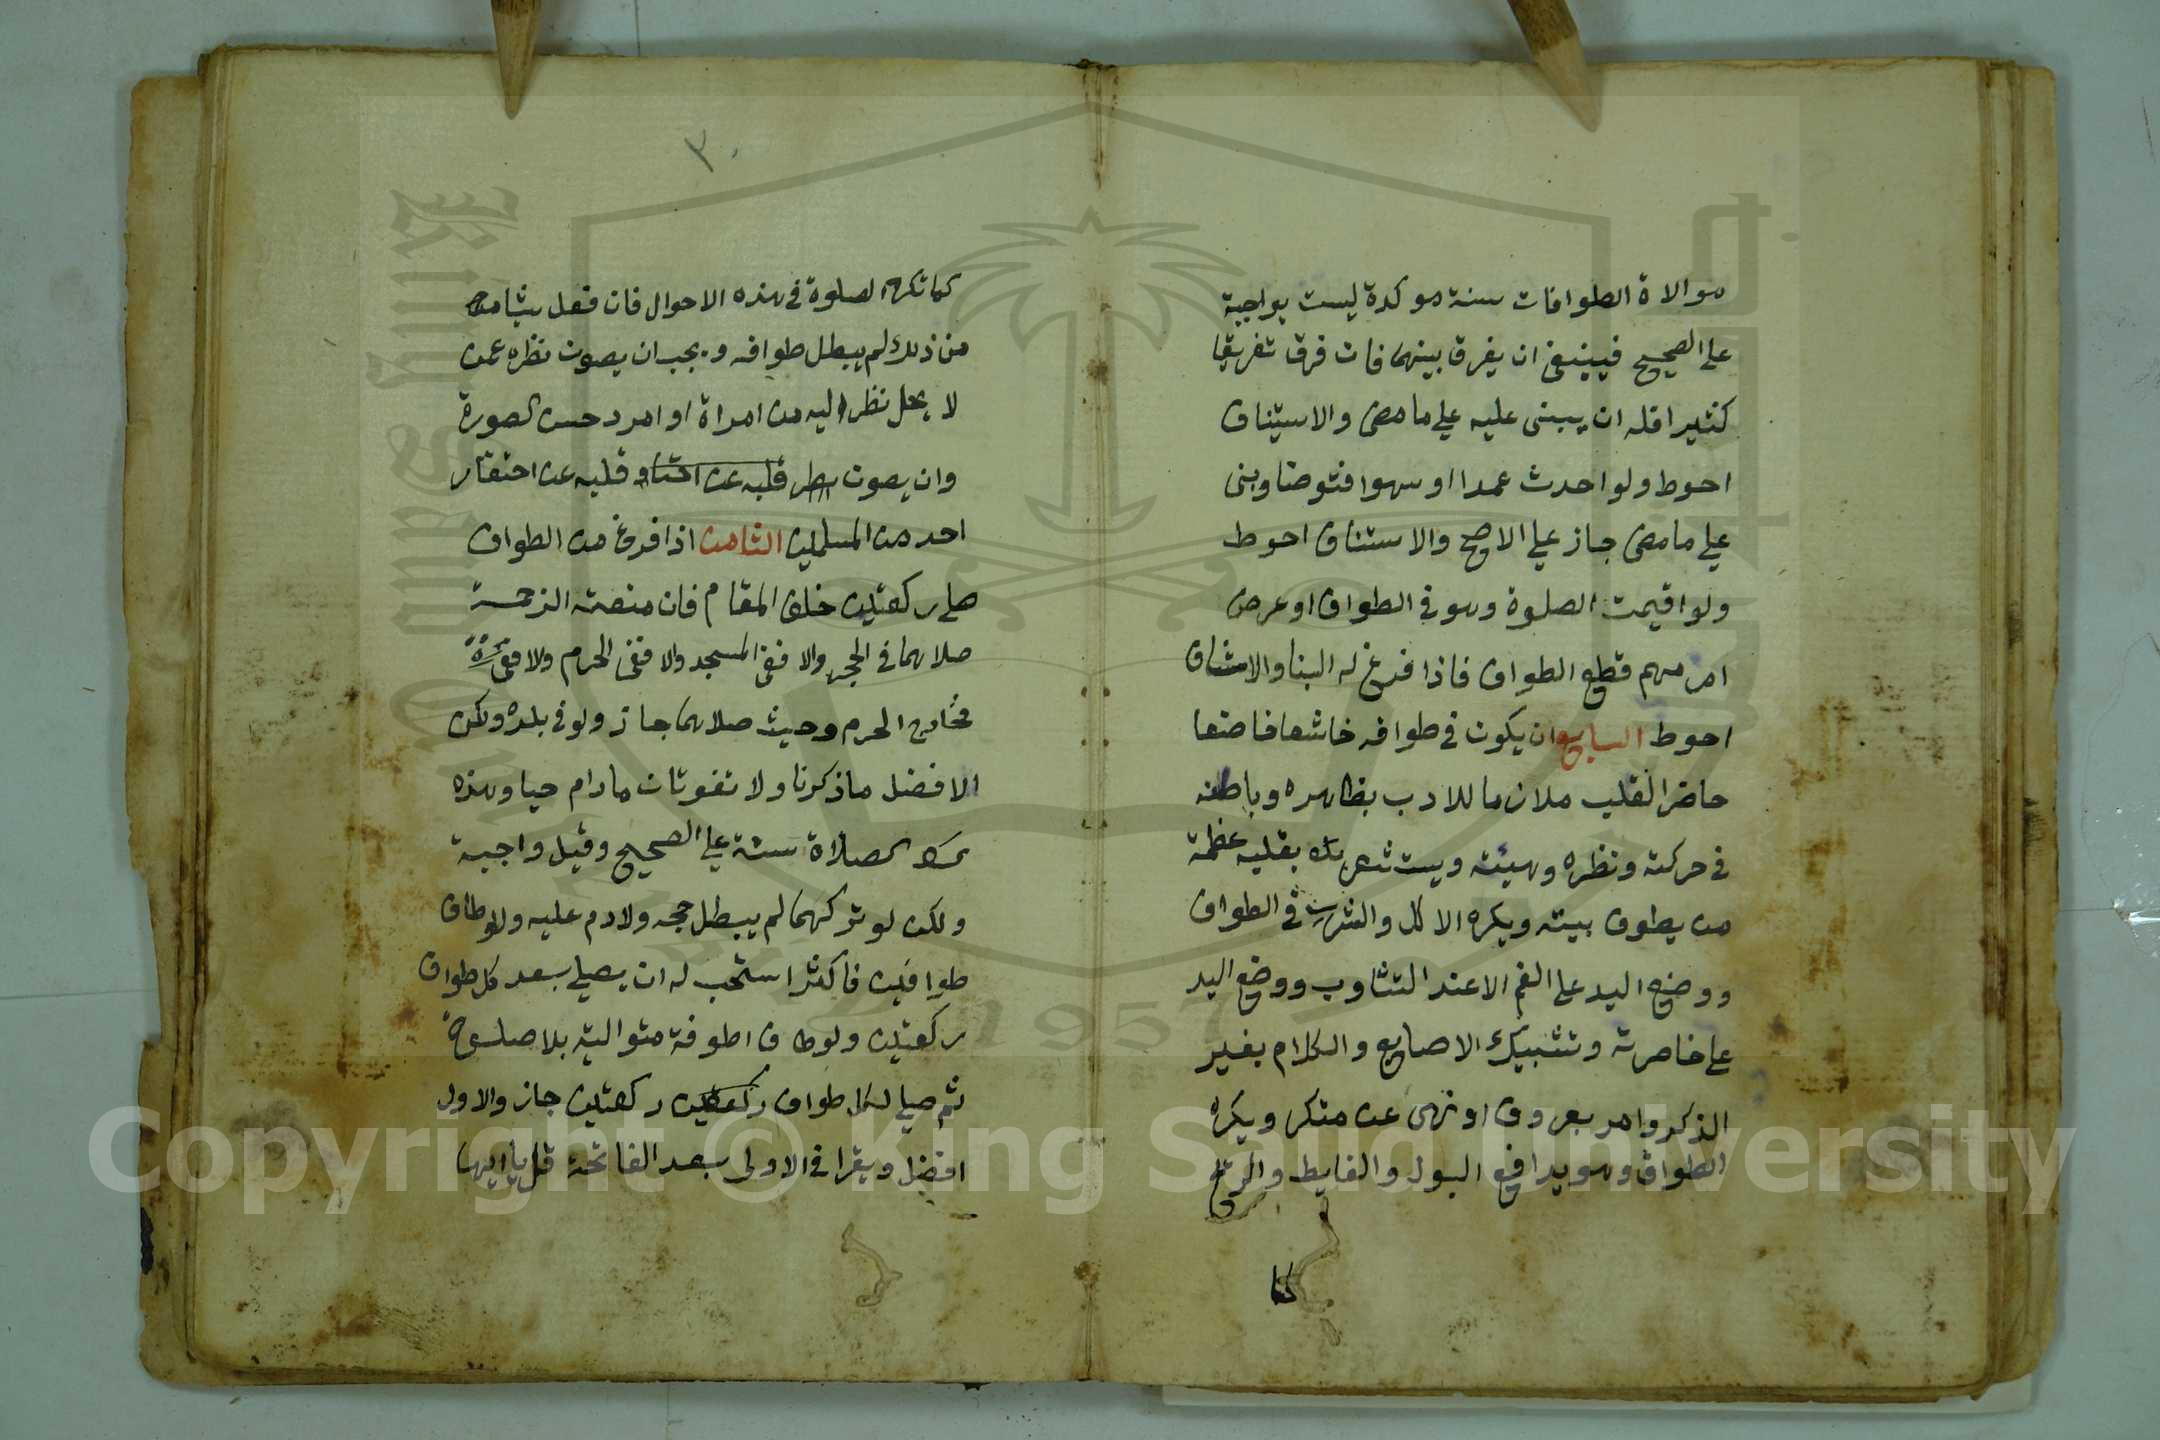 موالاة الطوافات سنة موكدة ليست بواجبة
على الصحيح فينبغى ان يفرق بينهما فان فرق تفريقا
كثيرا قله ان يبنى عليه على ما مضى والاستيناف
احوط ولو احدث عمدا او سهوا فتوضا وبنى
على ما مضى جاز على الاصح والاستناف احوط
ولو اقيمت الصلوة وهو فى الطواف او عرض
امر مهم قطع الطواف فاذا فرغ له البنا والاستناف
احوط السابع ان يكون فى طوافه خاشعا خاضعا
حاضر القلب ملازما للادب بظاهره وباطنه
فى حركته ونظره وهيئته ويستشعر بقلبه عظمة
من يطوف ببيته ويكره الاكل والشرب فى الطواف
ووضع اليد على الفم الا عند التثاوب ووضع اليد
على خاصرته وتشبيك الاصابع والكلام بغير
الذكر وامر بمعروف او نهى عن منكر ويكره
الطواف وهو يدافع البول والغايط والريح
كما
٣٠
كما تكره الصلوة فى هذه الاحوال فان فعل شيا منه
من ذلك لم يبطل طوافه ويجب ان يصون نظره عمن
لا يحل نظر اليه من امراة او امرد حسن الصورة
وان يصون نظر قلبه عن احتقار وقلبه عن احتقار
احد من المسلمين الثامن اذا فرغ من الطواف
صلى ركعتين خلف المقام فان منعته الزحمة
صلاهما فى الحجر والا ففى المسجد والا ففى الحرم والا ففى
خارج الحرم وحيث صلاهما جاز ولو فى بلده ولكن
الافضل ما ذكرنا ولا تفوتان ما دام حيا وهذه
الصلاة سنة على الصحيح وقيل واجبة
ولكن لو تركهما لم يبطل حجه ولا دم عليه ولو طاف
طوافين فاكثر استحب له ان يصلى بعد كل طواف
ركعتين ولو طاف اطوفة متوالية بلا صلوة
ثم صلى لكل طواف ركعتين ركعتين جاز والاول
افضل ويقرا فى الاولى بعد الفاتحة قل يا ايها
Copyright © King Saud University
King Saud University
1957